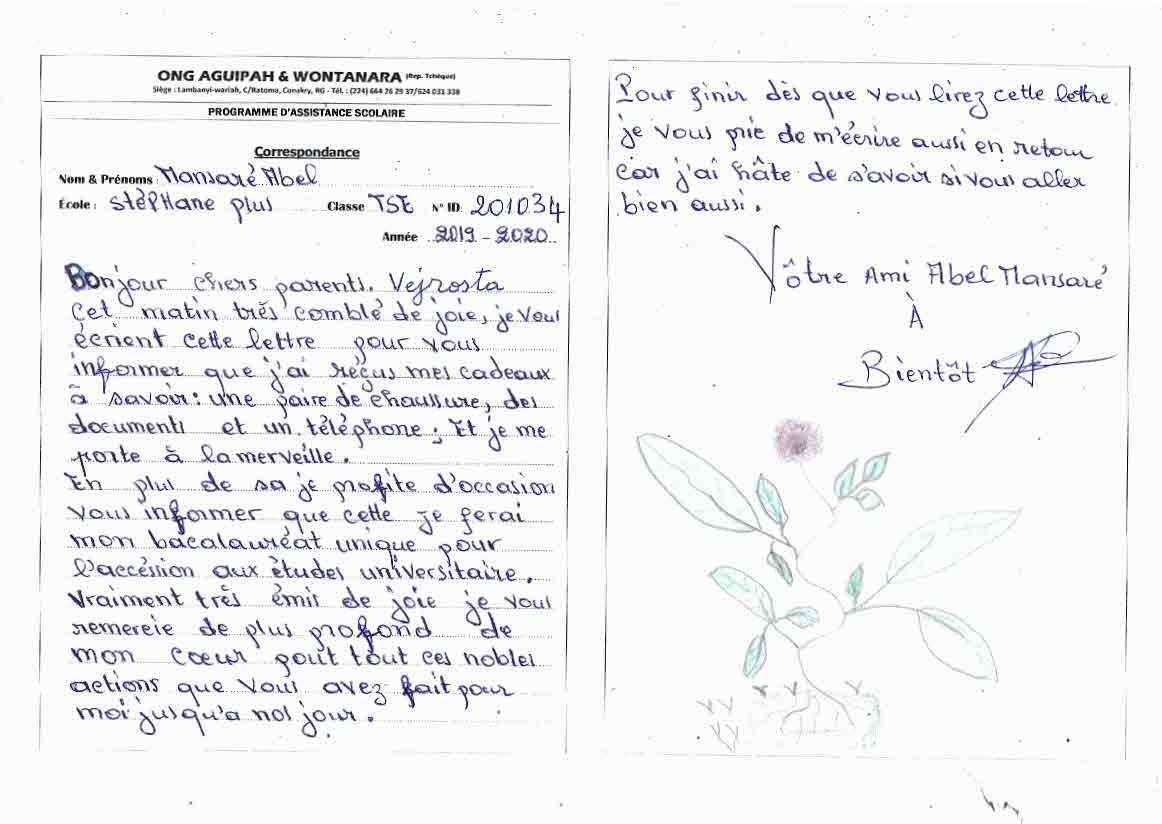 ONG AGUIPAH & WONTANARA (Rep. Tchèque)
Siège : Lambanyi-wariah, C/Ratoma, Conakry, RG - Tél. : (224) 664 26 29 37/624 031 338
PROGRAMME D'ASSISTANCE SCOLAIRE
Correspondance
Nom & Prénoms Mansaré Abel
École : Stéphane plus Classe TSE N° ID 201034
Année 2019 - 2020
Bonjour chers parents. Vejrosta
Cet matin très comblé de joie, je vous
écrient cette lettre pour vous
informer que j'ai réçus mes cadeaux
à savoir : une paire de chaussure, des
documents et un téléphone ; Et je me
porte à la merveille.
En plus de sa je profite d'occasion
vous informer que cette je ferai
mon bacalauréat unique pour
l'accéssion aux études universitaire.
Vraiment très émis de joie je vous
remercie de plus profond de
mon cœur pout tout ces nobles
actions que vous avez fait pour
moi jusqu'a nos jour.
Pour finir dès que vous lirez cette lettre
je vous prie de m'écrire aussi en retour
Car j'ai hâte de s'avoir si vous aller
bien aussi.
Vôtre Ami Abel Mansaré
À
Bientôt